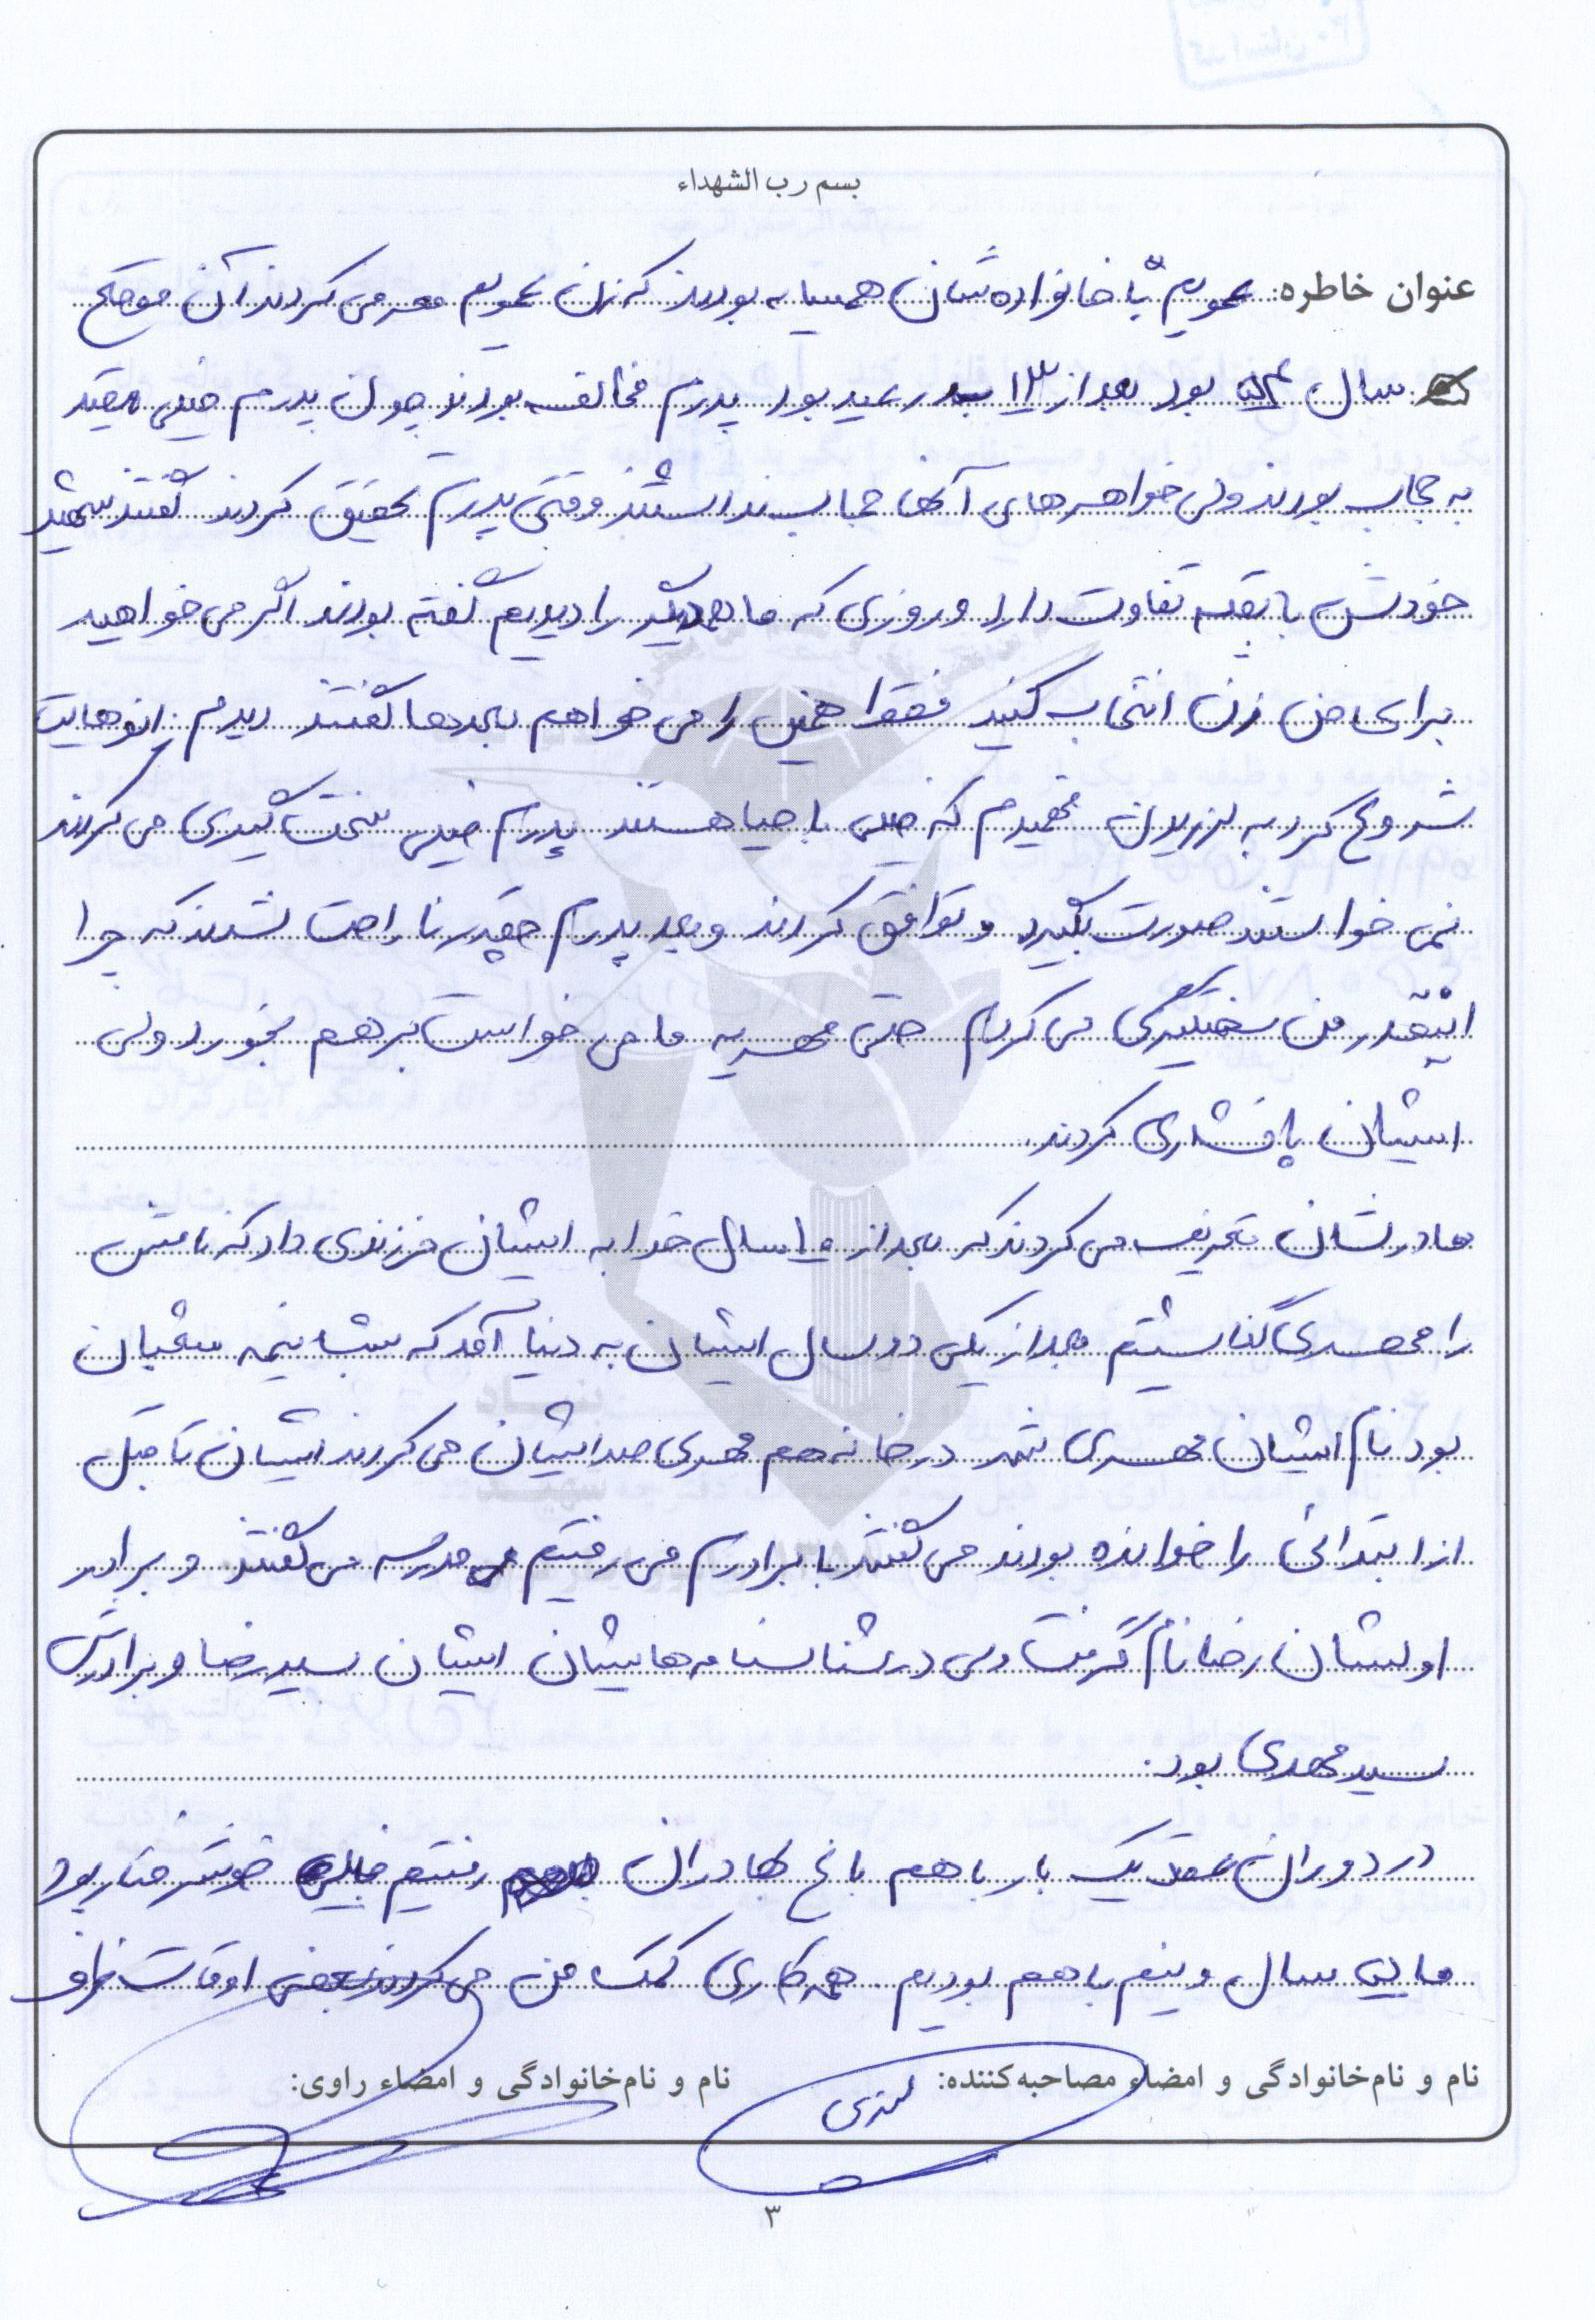 بسم رب الشهداء
عنوان خاطره: عمویم با خانواده شان همسایه بودند که زن عمویم معرفی کردند آن موقع
سال بود بعد از ۱۳ بدر عید بود پدرم مخالف بودند چون پدرم خیلی مقید
به حجاب بودند ولی خواهرهای آنها حجاب نداشتند وقتی پدرم تحقیق کردند گفتند شهید
خودش با بقیه تفاوت دارد و روزی که ما همدیگر را دیدیم گفته بودند اگر می خواهید
برای من زن انتخاب کنید فقط همین را می خواهم بعدها گفتند دیدم زانوهایت
شروع کرد به لرزیدن فهمیدم که خیلی با حیا هستند پدرم خیلی سخت گیری می کردند
نمی خواستند صورت بگیرد و توافق کردند و بعد پدرم چقدر ناراحت شدند که چرا
اینقدر من سختگیری می کردم حتی مهریه ما می خواست بر هم بخورد ولی
ایشان پافشاری کردند.
مادرشان تعریف می کردند که بعد از ۱۰ سال خدا به ایشان فرزندی داد که نامش
را مهدی گذاشتیم بعد از یکی دو سال ایشان به دنیا آمد که شب نیمه شعبان
بود نام ایشان مهدی شد در خانه هم مهدی صدایشان می کردند ایشان تا قبل
از ابتدائی را خوانده بودند می گفتند با برادرم می رفتیم مدرسه می گفتند و برادر
اولشان رضا نام گرفت ولی در شناسنامه هایشان ایشان سید رضا و برادرش
سید مهدی بود.
در دوران عقد یک بار با هم باغ بهادران رفتیم خیلی خوش رفتار بود
ما سال و نیم با هم بودیم. همه کاری کمک من می کردند بعضی اوقات ظرف
نام و نام‌خانوادگی و امضاء مصاحبه‌کننده:
نام و نام‌خانوادگی و امضاء راوی:
۳